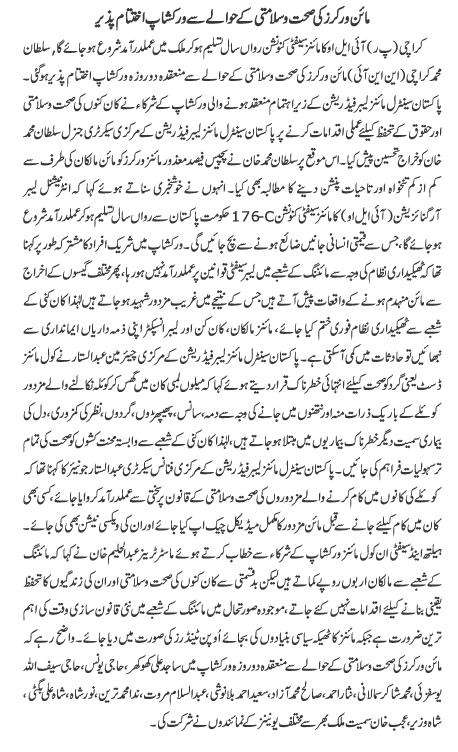 مائن ورکرز کی صحت و سلامتی کے حوالے سے ورکشاپ اختتام پذیر
کراچی (پ ر) آئی ایل او کا مائنز سیفٹی کنونشن رواں سال تسلیم ہو کر ملک میں عملدرآمد شروع ہو جائے گا، سلطان
محمد کراچی (این این آئی) مائن ورکرز کی صحت و سلامتی کے حوالے سے منعقدہ دو روزہ ورکشاپ اختتام پذیر ہو گئی۔
پاکستان سینٹرل مائنز لیبر فیڈریشن کے زیر اہتمام منعقد ہونے والی ورکشاپ کے شرکاء نے کان کنوں کی صحت و سلامتی
اور حقوق کے تحفظ کیلئے عملی اقدامات کرنے پر پاکستان سینٹرل مائنز لیبر فیڈریشن کے مرکزی سیکرٹری جنرل سلطان محمد
خان کو خراج تحسین پیش کیا۔ اس موقع پر سلطان محمد خان نے پچیس فیصد معذور مائنز ورکرز کو مائن مالکان کی طرف سے
کم از کم تنخواہ اور تاحیات پنشن دینے کا مطالبہ بھی کیا۔ انہوں نے خوشخبری سناتے ہوئے کہا کہ انٹرنیشنل لیبر
آرگنائزیشن (آئی ایل او) کا مائنز سیفٹی کنونشن C-176 حکومت پاکستان سے رواں سال تسلیم ہو کر عملدرآمد شروع
ہو جائے گا، جس سے قیمتی انسانی جانیں ضائع ہونے سے بچ جائیں گی۔ ورکشاپ میں شریک افراد کا مشترکہ طور پر کہنا
تھا کہ ٹھیکیداری نظام کی وجہ سے مائننگ کے شعبے میں لیبر سیفٹی قوانین پر عملدرآمد نہیں ہو رہا، پھر مختلف گیسوں کے اخراج
سے مائن منہدم ہونے کے واقعات پیش آتے ہیں جس کے نتیجے میں غریب مزدور شہید ہو جاتے ہیں لہٰذا کان کنی کے
شعبے سے ٹھیکیداری نظام فوری ختم کیا جائے، مائنز مالکان، کان کن اور لیبر انسپکٹر اپنی ذمہ داریاں ایمانداری سے
نبھائیں تو حادثات میں کمی آسکتی ہے۔ پاکستان سینٹرل مائنز لیبر فیڈریشن کے مرکزی چیئرمین عبدالستار نے کول مائنز
ڈسٹ یعنی گرد کو صحت کیلئے انتہائی خطرناک قرار دیتے ہوئے کہا کہ میلوں لمبی کان میں گھس کر کوئلہ نکالنے والے مزدور
کوئلے کے باریک ذرات منہ اور نتھنوں میں جانے کی وجہ سے دمہ، سانس، پھیپھڑوں، گردوں، نظر کی کمزوری، دل کی
بیماری سمیت دیگر خطرناک بیماریوں میں مبتلا ہو جاتے ہیں، لہٰذا کان کنی کے شعبے سے وابستہ محنت کشوں کو صحت کی تمام
تر سہولیات فراہم کی جائیں۔ پاکستان سینٹرل مائنز لیبر فیڈریشن کے مرکزی فنانس سیکرٹری عبدالستار جونیئر کا کہنا تھا کہ
کوئلے کی کانوں میں کام کرنے والے مزدوروں کی صحت و سلامتی کے قانون پر سختی سے عملدرآمد کروایا جائے، کسی بھی
کان میں کام کیلئے جانے سے قبل مائن مزدور کا مکمل میڈیکل چیک اپ کیا جائے اور ان کی ویکسی نیشن بھی کی جائے۔
ہیلتھ اینڈ سیفٹی ان کول مائنز ورکشاپ کے شرکاء سے خطاب کرتے ہوئے ماسٹر ٹرینر عبدالحلیم خان نے کہا کہ مائننگ
کے شعبے سے مالکان اربوں روپے کماتے ہیں لیکن بدقسمتی سے کان کنوں کی صحت و سلامتی اور ان کی زندگیوں کا تحفظ
یقینی بنانے کیلئے اقدامات نہیں کئے جاتے، موجودہ صورتحال میں مائننگ کے شعبے میں نئی قانون سازی وقت کی اہم
ترین ضرورت ہے جبکہ مائنز کا ٹھیکہ سیاسی بنیادوں کی بجائے اوپن ٹینڈرز کی صورت میں دیا جائے۔ واضح رہے کہ
مائن ورکرز کی صحت و سلامتی کے حوالے سے منعقدہ دو روزہ ورکشاپ میں ساجد علی کھوکھر، حاجی یونس، حاجی سیف اللہ
یوسفزئی، محمد شاکر سمالانی، نثار احمد، صالح محمد آزاد، سعید احمد بلانوشی، عبدالسلام مروت، ندا محمد ترین، نور شاہ، شاہ علی بگٹی،
شاہ وزیر، عجب خان سمیت ملک بھر سے مختلف یونینز کے نمائندوں نے شرکت کی۔